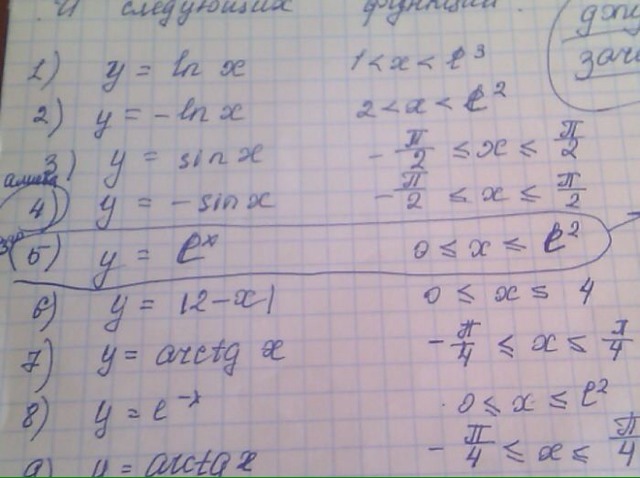 и следующих функций.
1) y = ln x 1 < x < e³
2) y = - ln x 2 < x < e²
3) y = sin x - π/2 ≤ x ≤ π/2
4) y = - sin x - π/2 ≤ x ≤ π/2
5) y = eˣ 0 ≤ x ≤ e²
6) y = |2 - x| 0 ≤ x ≤ 4
7) y = arctg x - π/4 ≤ x ≤ π/4
8) y = e⁻ˣ 0 ≤ x ≤ e²
9) y = arctg x - π/4 ≤ x ≤ π/4